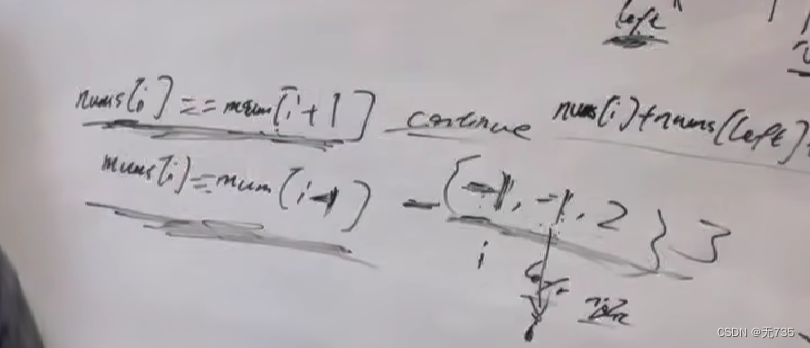 left
nums[i] == num[i+1] continue nums[i]+nums[left]+
nums[i]==num[i-1] - {-1, -1, 2 }
i
CSDN @无735